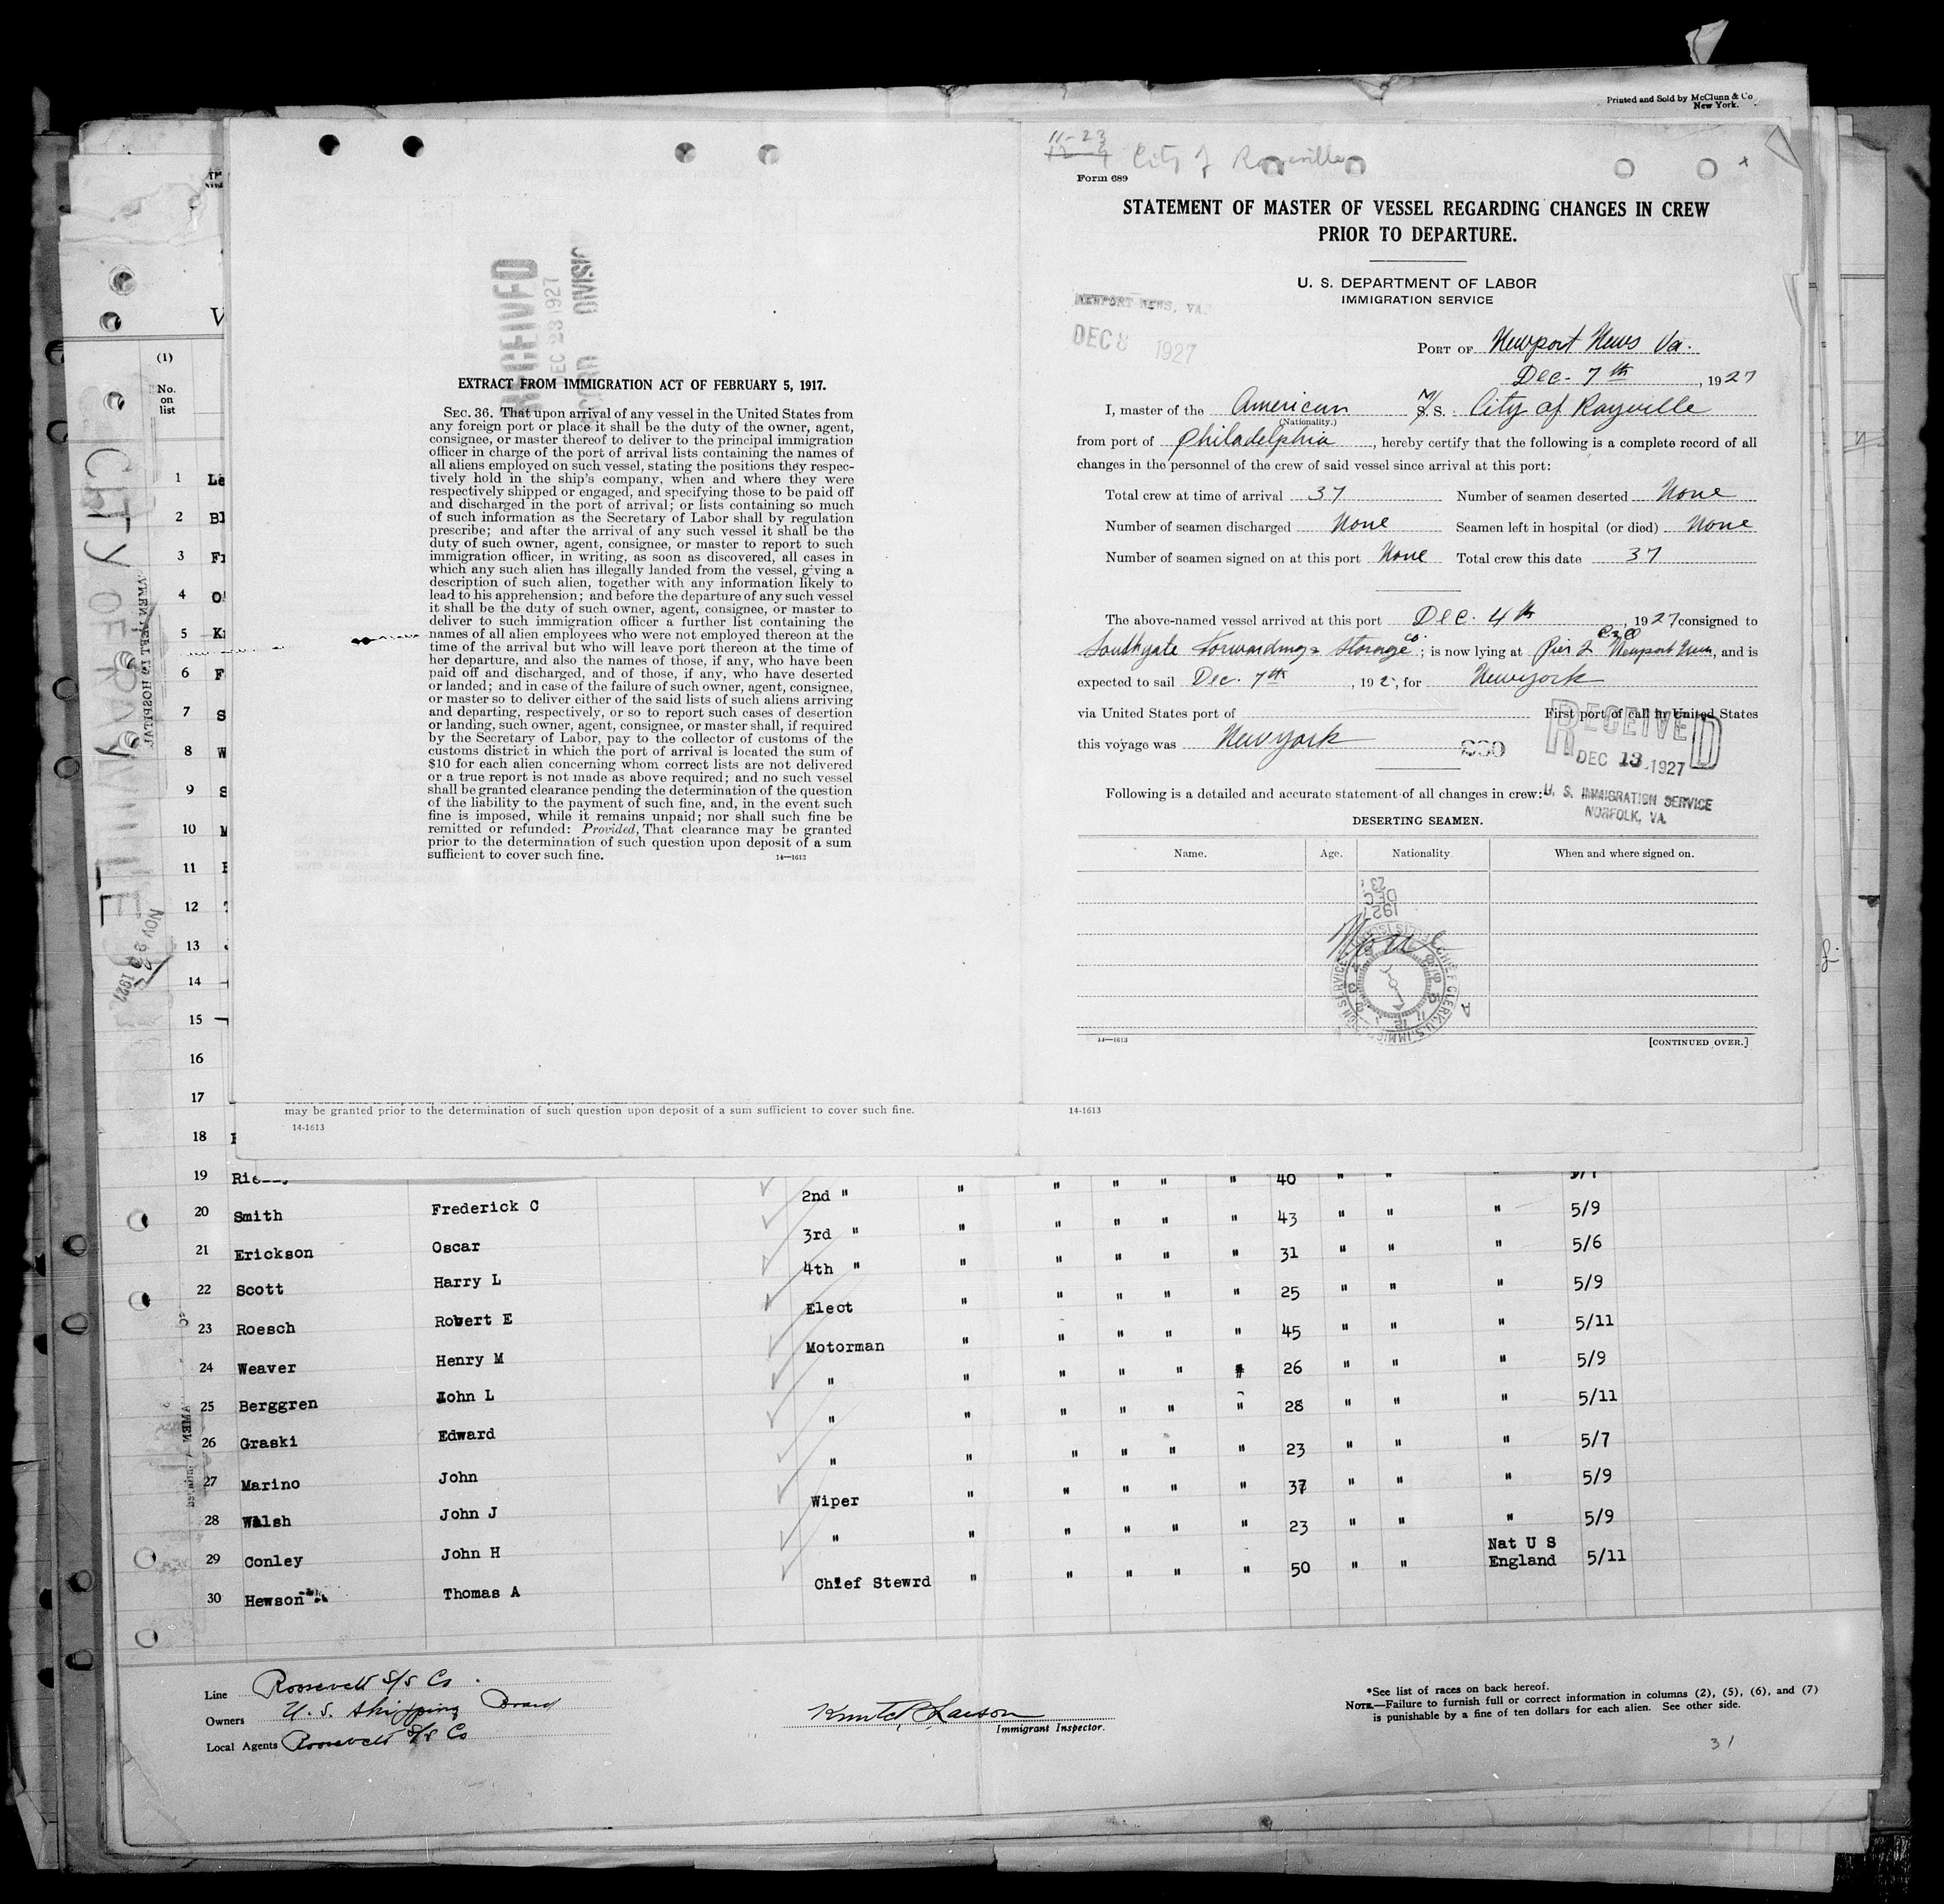 Printed and Sold by McClunn & Co
New York.
11-23
City of Rayville
Form 689
STATEMENT OF MASTER OF VESSEL REGARDING CHANGES IN CREW
PRIOR TO DEPARTURE.
U. S. DEPARTMENT OF LABOR
IMMIGRATION SERVICE
NEWPORT NEWS, VA.
DEC 8 1927
PORT OF Newport News Va.
Dec. 7th, 1927
I, master of the American M/S. City of Rayville
(Nationality.)
from port of Philadelphia, hereby certify that the following is a complete record of all
changes in the personnel of the crew of said vessel since arrival at this port:
Total crew at time of arrival 37 Number of seamen deserted None
Number of seamen discharged None Seamen left in hospital (or died) None
Number of seamen signed on at this port None Total crew this date 37
The above-named vessel arrived at this port Dec. 4th, 1927 consigned to
Southgate Forwarding & Storage Co.; is now lying at Pier 2 C&O Newport News, and is
expected to sail Dec. 7th, 192, for Newyork
via United States port of First port of call in United States
this voyage was Newyork
RECEIVED
DEC 13 1927
U. S. IMMIGRATION SERVICE
NORFOLK, VA.
Following is a detailed and accurate statement of all changes in crew:
DESERTING SEAMEN.
Name. Age. Nationality. When and where signed on.
DEC 23
1927
None
CHIEF CLERK U.S. IMMIG
14—1613
[CONTINUED OVER.]
RECEIVED
DEC 23 1927
CARD DIVISION
EXTRACT FROM IMMIGRATION ACT OF FEBRUARY 5, 1917.
SEC. 36. That upon arrival of any vessel in the United States from
any foreign port or place it shall be the duty of the owner, agent,
consignee, or master thereof to deliver to the principal immigration
officer in charge of the port of arrival lists containing the names of
all aliens employed on such vessel, stating the positions they respec-
tively hold in the ship's company, when and where they were
respectively shipped or engaged, and specifying those to be paid off
and discharged in the port of arrival; or lists containing so much
of such information as the Secretary of Labor shall by regulation
prescribe; and after the arrival of any such vessel it shall be the
duty of such owner, agent, consignee, or master to report to such
immigration officer, in writing, as soon as discovered, all cases in
which any such alien has illegally landed from the vessel, giving a
description of such alien, together with any information likely to
lead to his apprehension; and before the departure of any such vessel
it shall be the duty of such owner, agent, consignee, or master to
deliver to such immigration officer a further list containing the
names of all alien employees who were not employed thereon at the
time of the arrival but who will leave port thereon at the time of
her departure, and also the names of those, if any, who have been
paid off and discharged, and of those, if any, who have deserted
or landed; and in case of the failure of such owner, agent, consignee,
or master so to deliver either of the said lists of such aliens arriving
and departing, respectively, or so to report such cases of desertion
or landing, such owner, agent, consignee, or master shall, if required
by the Secretary of Labor, pay to the collector of customs of the
customs district in which the port of arrival is located the sum of
$10 for each alien concerning whom correct lists are not delivered
or a true report is not made as above required; and no such vessel
shall be granted clearance pending the determination of the question
of the liability to the payment of such fine, and, in the event such
fine is imposed, while it remains unpaid; nor shall such fine be
remitted or refunded: Provided, That clearance may be granted
prior to the determination of such question upon deposit of a sum
sufficient to cover such fine.
14—1613
may be granted prior to the determination of such question upon deposit of a sum sufficient to cover such fine.
14-1613
14-1613
CITY OF RAYVILLE
NOV 23 1927
(1)
No.
on
list
1 Le
2 Bl
3 Fr
4 O
5 Kr
6 F
7 S
8 W
9 S
10 M
11
12
13
14
15
16
17
18
19 Ri 2nd " " " " " " 40 " "
20 Smith Frederick C 3rd " " " " " " 43 " " " 5/9
21 Erickson Oscar 4th " " " " " " 31 " " " 5/6
22 Scott Harry L Elect " " " " " 25 " " " 5/9
23 Roesch Robert E Motorman " " " " " 45 " " " 5/11
24 Weaver Henry M " " " " " " 26 " " " 5/9
25 Berggren John L " " " " " " 28 " " " 5/11
26 Graski Edward " " " " " " 23 " " " 5/7
27 Marino John Wiper " " " " " 37 " " " 5/9
28 Walsh John J " " " " " " 23 " " " 5/9
29 Conley John H Chief Stewrd " " " " " 50 " " Nat U S England 5/11
30 Hewson Thomas A
Line Roosevelt S/S Co.
Owners U. S. Shipping Board
Local Agents Roosevelt S/S Co
Immigrant Inspector.
*See list of races on back hereof.
NOTE.—Failure to furnish full or correct information in columns (2), (5), (6), and (7)
is punishable by a fine of ten dollars for each alien. See other side.
31